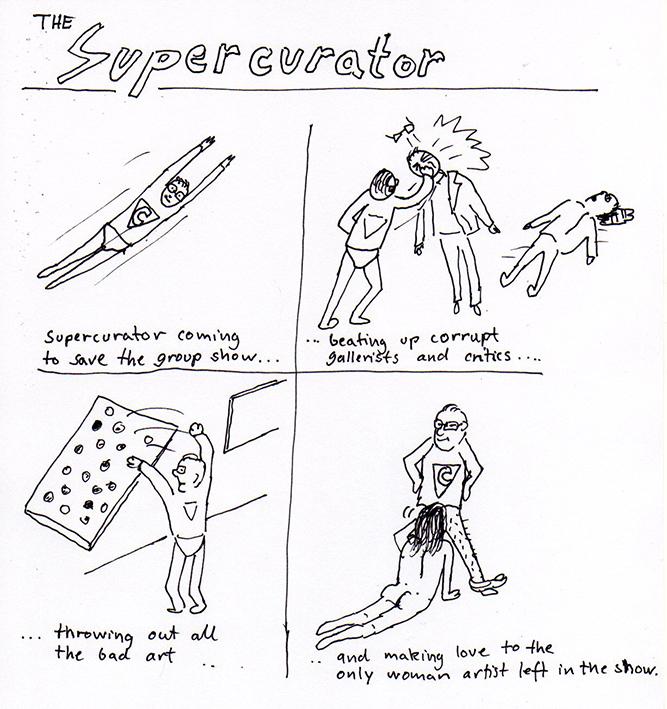 THE
Supercurator
C
Supercurator coming
to save the group show...
.. beating up corrupt
gallerists and critics....
... throwing out all
the bad art ..
C
.. and making love to the
only woman artist left in the show.